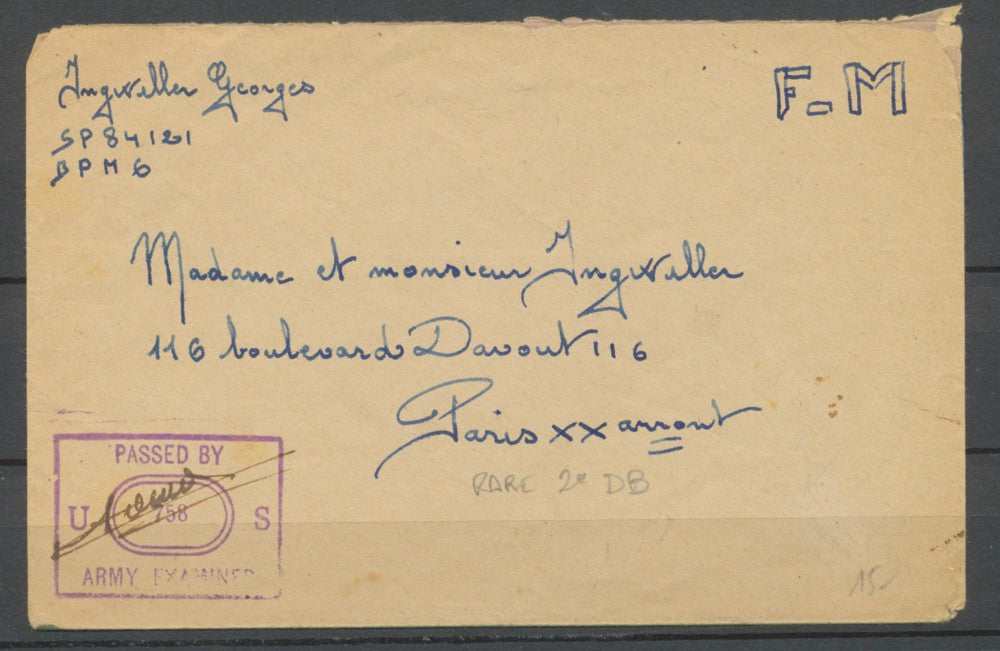 Ingwiller Georges
F.M
SP 84121
BPM 6
Madame et monsieur Ingwiller
116 boulevard Davout 116
Paris XX arront
RARE 2e DB
PASSED BY
U 758 S
ARMY EXAMINER
15-